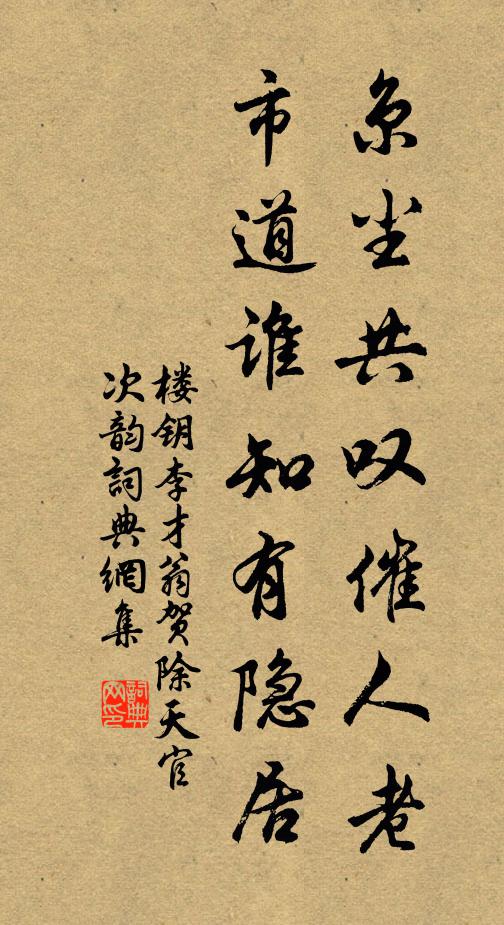 京尘共叹催人老
市道谁知有隐居
楼钥李才翁贺除天官
次韵詞典網集
詞典网印